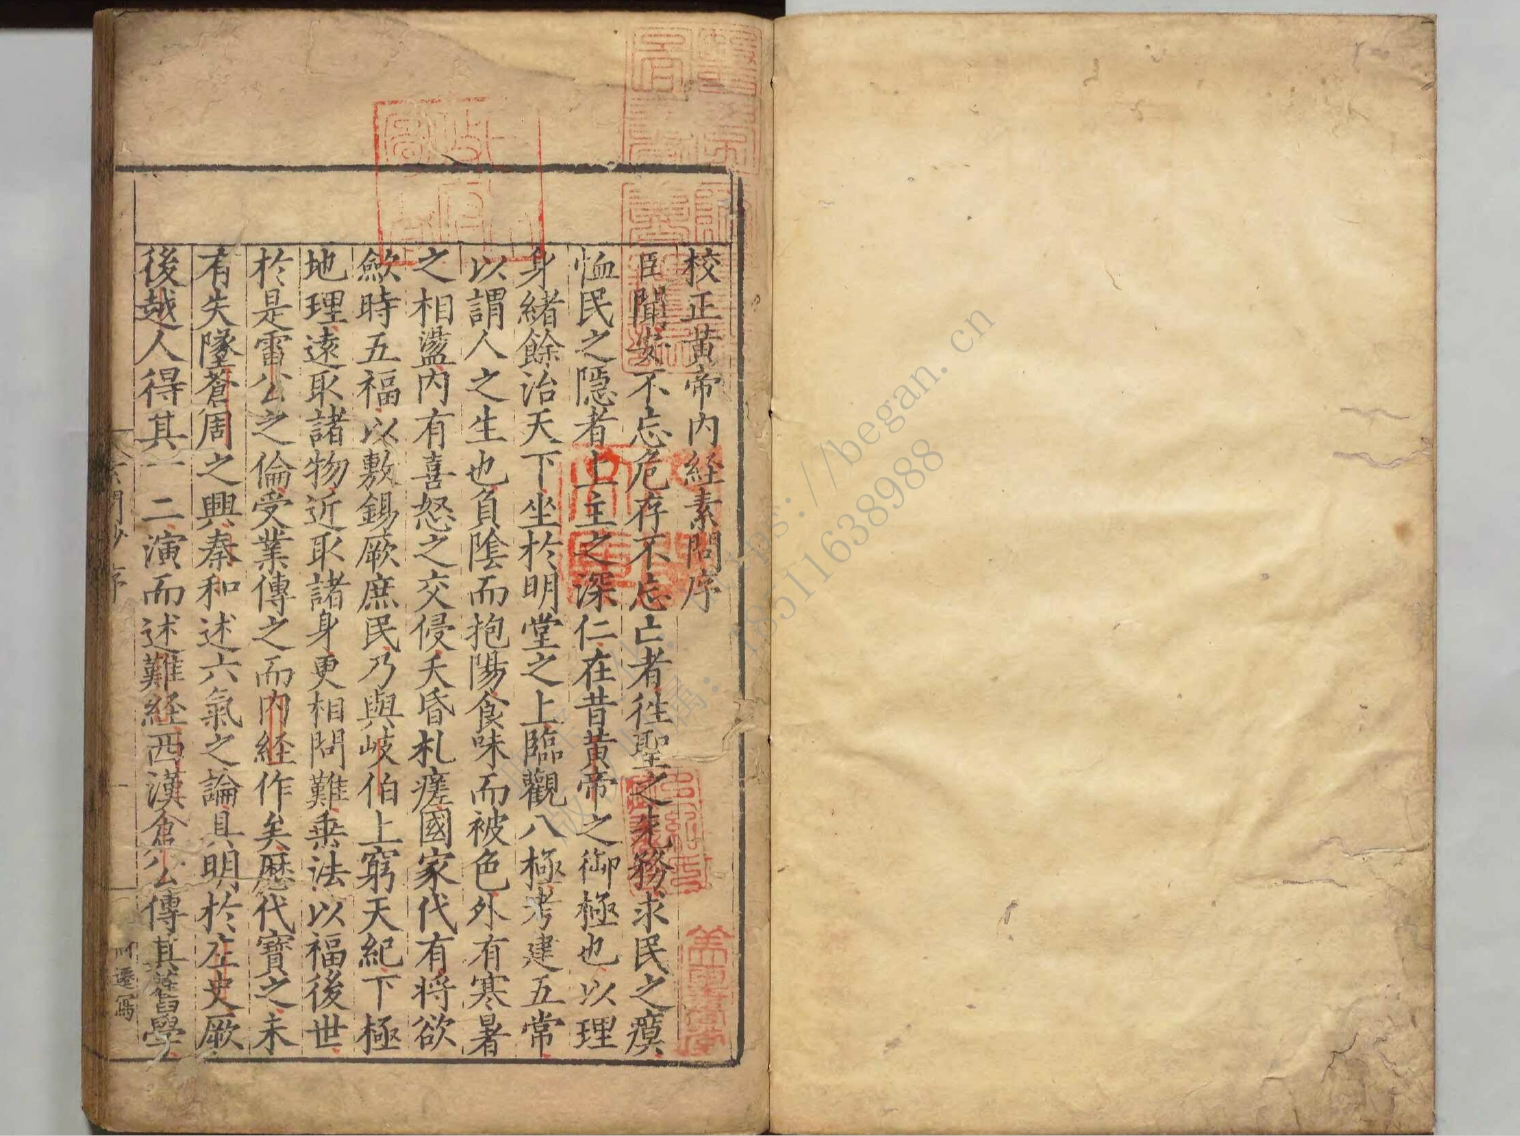 校正黃帝内経素問序
臣聞安不忘危存不忘亡者徃聖之先務求民之瘼
恤民之隱者上主之深仁在昔黃帝之御極也以理
身緒餘治天下坐於明堂之上臨觀八極考建五常
以謂人之生也負陰而抱陽食味而被色外有寒暑
之相盪内有喜怒之交侵夭昏札瘥國家代有将欲
斂時五福以敷錫厥庶民乃與岐伯上窮天紀下極
地理遠取諸物近取諸身更相問難乗法以福後世
於是雷公之倫受業傳之而内経作矣歷代寶之未
有失墜蒼周之興秦和述六氣之論具明於左史厥
後越人得其一二演而述難経西漢倉公傳其舊學
序
https://began.cn
18511638988